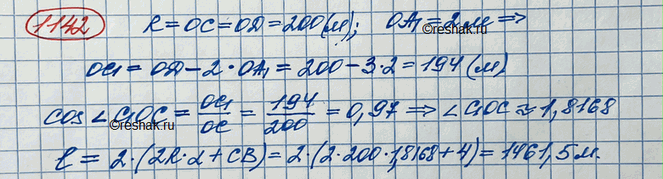 1142 R = OC = OD = 200 (м); OA₁ = 2 м ⇒
©reshak.ru
OC₁ = OD − 2 · OA₁ = 200 − 3·2 = 194 (м)
cos ∠C₁OC = OC₁/OC = 194/200 = 0,97 ⇒ ∠C₁OC ≈ 1,8168
©reshak.ru
ℓ = 2·(2R·α + CB) = 2·(2·200·1,8168 + 4) = 1461,5 м.